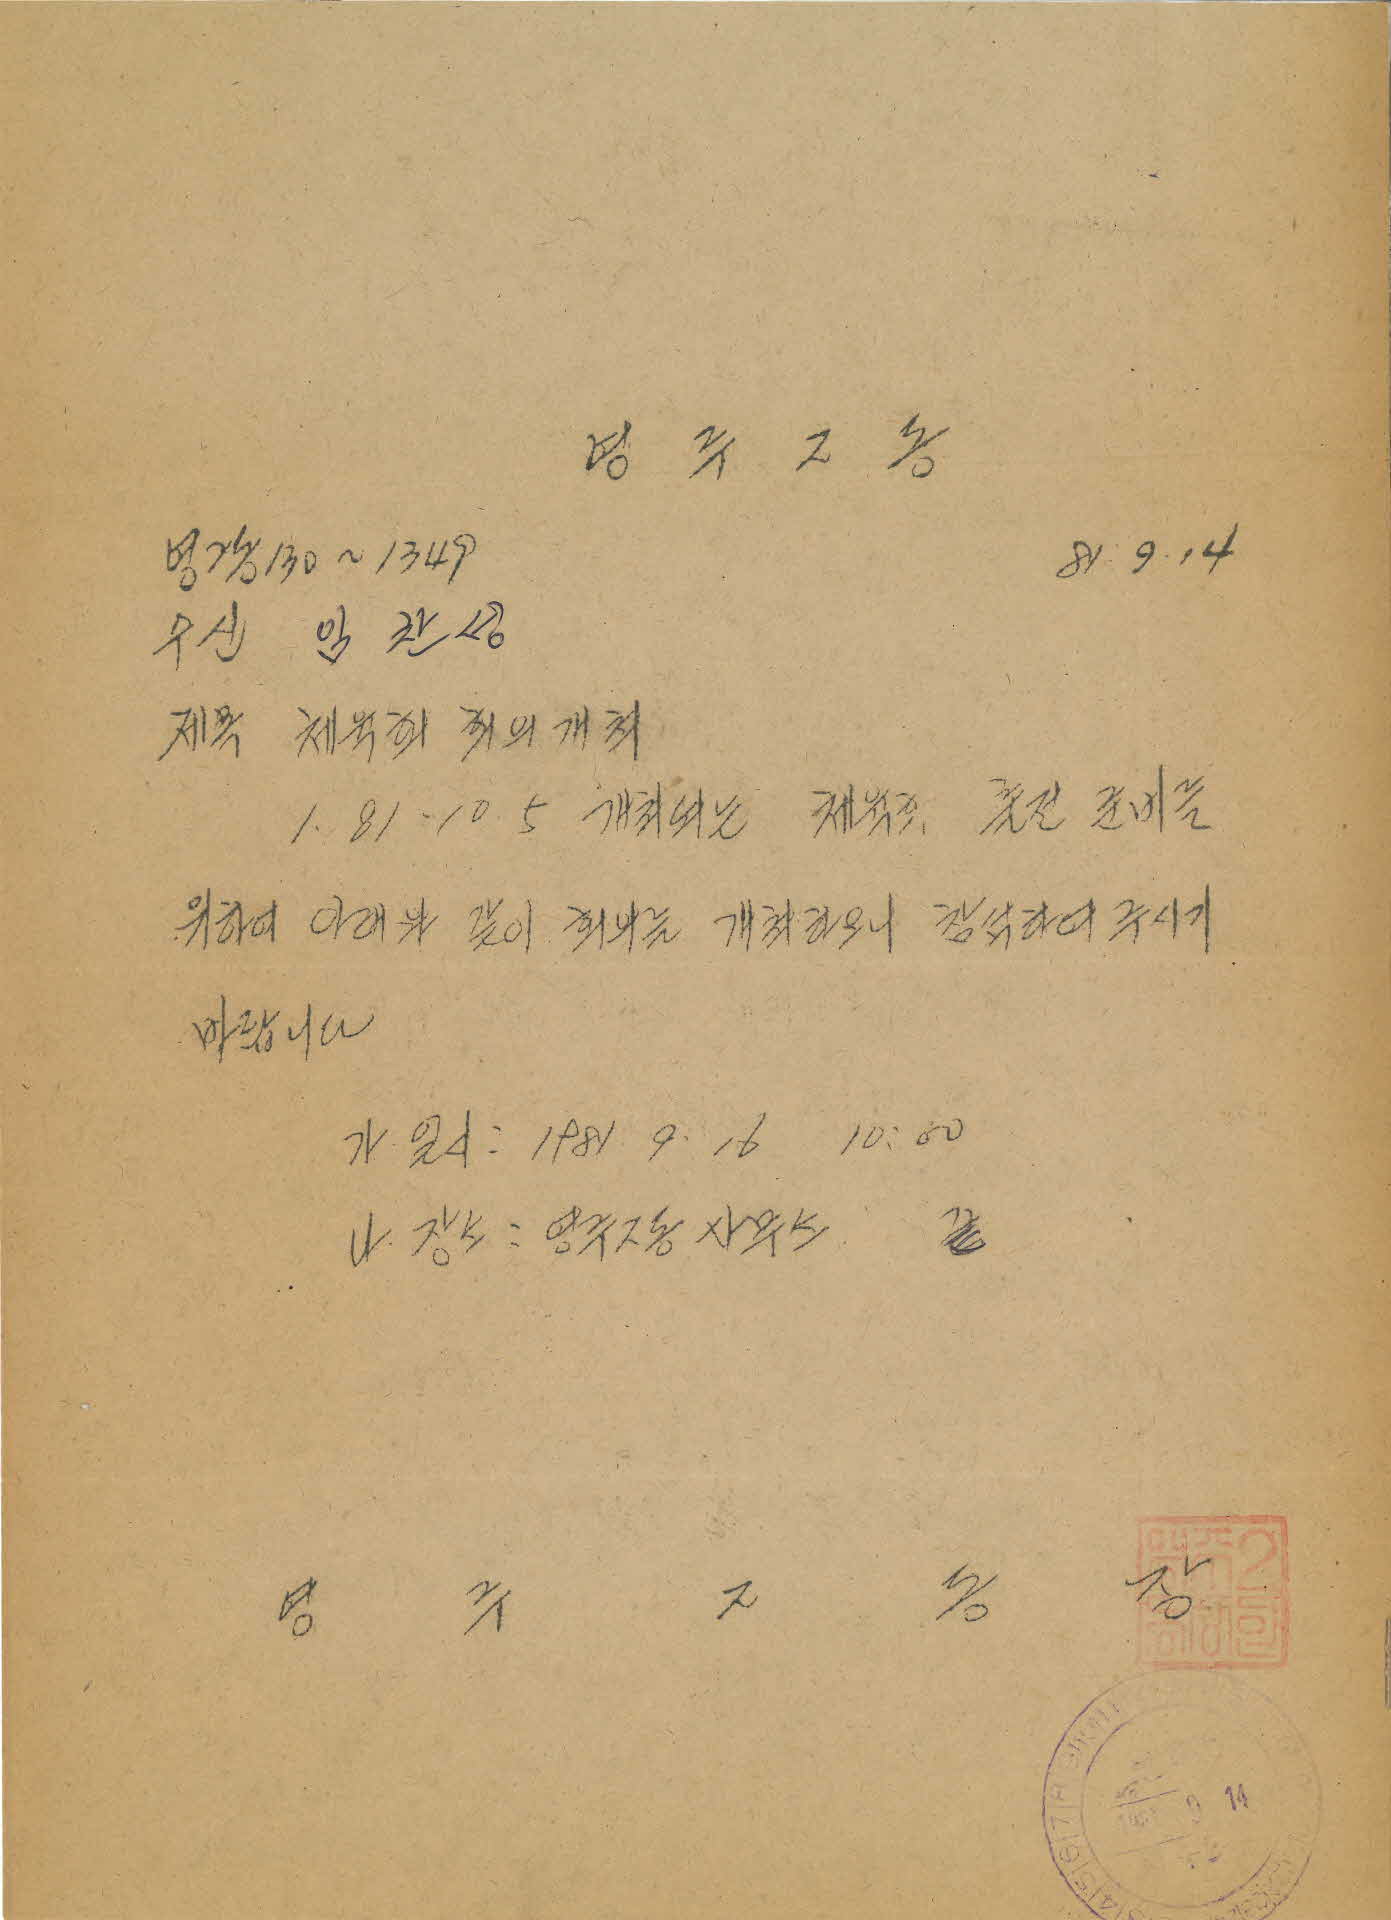 영 주 2 동
영2동130~1349 81. 9. 14
수신 임 찬 성
제목 체육회 회의개최
1. 81. 10. 5 개최되는 체육회 출전 준비를
위하여 아래와 같이 회의를 개최하오니 참석하여 주시기
바랍니다
가. 일시: 1981. 9. 16 10:00
나. 장소: 영주2동 사무소 끝
영 주 2 동 장
9 14